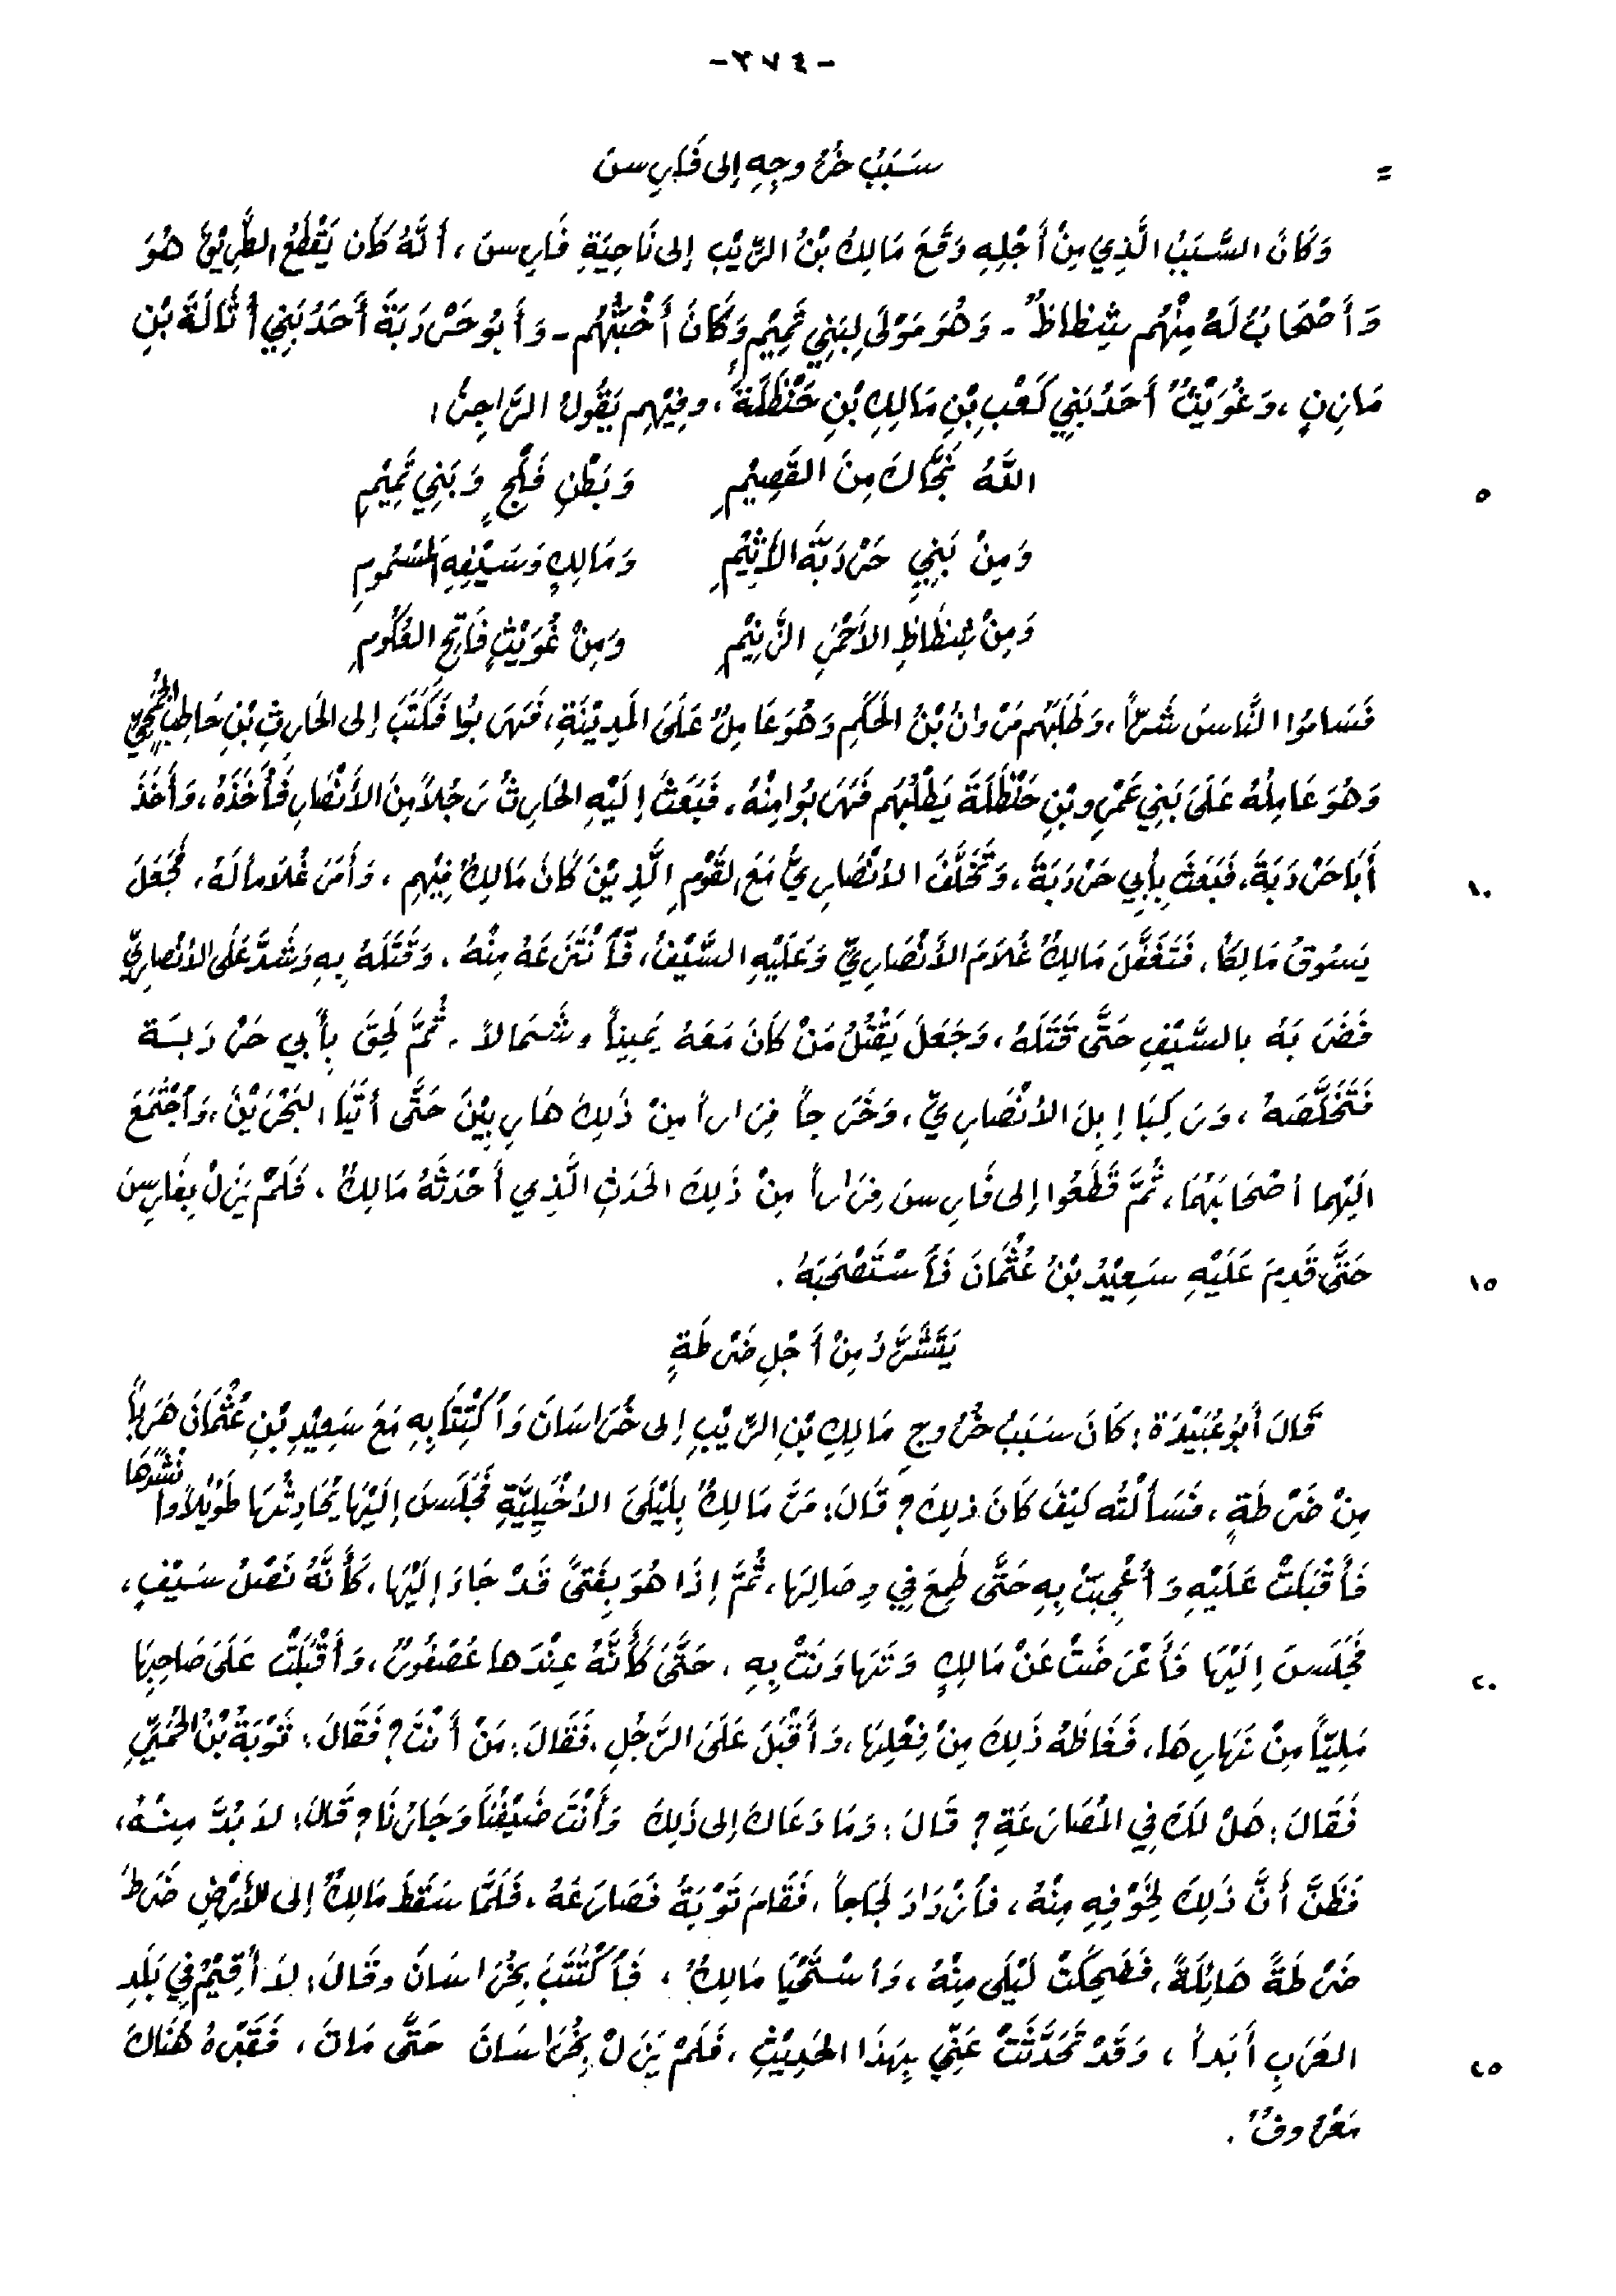 -٢٧٤-
= سَبَبُ خُرُوجِهِ إلى فَارِسَ
وَكَانَ السَّبَبُ الَّذِي مِنْ أَجْلِهِ وَقَعَ مَالِكُ بْنُ الرَّيْبِ إلى نَاحِيَةِ فَارِسَ، أَنَّهُ كَانَ يَقْطَعُ الطَّرِيْقَ هُوَ
وَأَصْحَابٌ لَهُ مِنْهُم شِظاظٌ - وَهُوَ مَوْلَى لِبَنِي تَمِيْمٍ وَكَانَ أَخْبَثُهُم - وَأَبُو حَرْدَبَةَ أَحَدُ بَنِي أُثَالَةَ بْنِ
مَازِنٍ، وَغُوَيْثٌ أَحَدُ بَنِي كَعْبِ بْنِ مَالِكِ بْنِ حَنْظَلَةَ، وفِيْهِم يَقُولُ الرَّاجِزُ:
اللَّهُ نَجَّاكَ مِنَ القَصِيْمِ وَبَطْنِ فَلْجٍ وَبَنِي تَمِيْمِ ٥
وَمِنْ بَنِي حَرْدَبَةَ الأَثِيْمِ وَمَالِكٍ وَسَيْفِهِ المَسْمُومِ
وَمِنْ شِظَاظِ الأَحْمَرِ الزَّنِيْمِ وَمِنْ غُوَيْثٍ فَاتِحِ العُكُومِ
فَسَامُوا النَّاسَ شَرّاً، وَطَلَبَهُم مَرْوانُ بْنُ الحَكَمِ وَهُوَ عَامِلٌ عَلَى المَدِيْنَةِ، فَهَرَبُوا فَكَتَبَ إلى الحَارِثِ بْنِ حَاطِبٍ الجُمَحِيِّ
وَهُوَ عَامِلُهُ عَلَى بَنِي عَمْرِو بْنِ حَنْظَلَةَ يَطْلُبُهُم فَهَرَبُوا مِنْهُ. فَبَعَثَ إِلَيْهِ الحَارِثُ رَجُلاً مِنَ الأَنْصَارِ فَأَخَذَهُ، وَأَخَذَ
أَبَا حَرْدَبَةَ، فَبَعَثَ بِأَبِي حَرْدَبَةَ، وَتَخَلَّفَ الأنْصَارِيُّ مَعَ القَوْمِ الَّذِيْنَ كَانَ مَالِكٌ فِيْهِم، وَأَمَرَ غُلاَماً لَهُ، فَجَعَلَ ١٠
يَسُوقُ مَالِكاً، فَتَغَفَّلَ مَالِكٌ غُلاَمَ الأَنْصَارِيِّ وَعَلَيْهِ السَّيْفُ، فَأنْتَزَعَهُ مِنْهُ. وَقَتَلَهُ بِهِ وَشَدَّ عَلَى الأنْصَارِيِّ
فَضَرَبَهُ بالسَّيْفِ حَتَّى قَتَلَهُ، وَجَعَلَ يَقْتُلُ مَنْ كَانَ مَعَهُ يَمِيناً وشَمَالاً. ثُمَّ لَحِقَ بِأَبي حَرْدَبَةَ
فَتَخَلَّصَهُ، وَرَكِبَا إِبِلَ الأنْصَارِيِّ، وَخَرَجَا فِرَاراً مِنْ ذَلِكَ هَارِبِيْنَ حَتَّى أَتَيَا البَحْرَيْنَ، وَاجْتَمَعَ
الَيْهِما أَصْحَابُهُمَا، ثُمَّ قَطَعُوا إلى فَارِسَ فِرَاراً مِنْ ذَلِكَ الحَدَثِ الَّذِي أَحْدَثَهُ مَالِكٌ. فَلَمْ يَزَلْ بِفَارِسَ
حَتَّى قَدِمَ عَلَيْهِ سَعِيْدُ بْنُ عُثْمَانَ فَأسْتَصْحَبَهُ. ١٥
يَتَشَرَّدُ مِنْ أَجْلِ ضَرْطَةٍ
قَالَ أَبُو عُبَيْدَة: كَانَ سَبَبُ خُرُوجِ مَالِكِ بْنِ الرَّيْبِ إلى خُرَاسَانَ وَأكْتِتَابِهِ مَعَ سَعِيْدِ بْنِ عُثْمَانَ هَرَباً
مِنْ ضَرْطَةٍ، فَسَأَلْتُه كَيْفَ كَانَ ذلِكَ؟ قَالَ: مَرَّ مَالِكٌ بِلَيْلَى الأخْيَلِيَّةِ فَجَلَسَ إِلَيْهَا يُحَادِثُهَا طَوِيْلاً وانْشَدَهَا
فَأَقْبَلَتْ عَلَيْهِ وَأُعْجِبَتْ بِهِ حَتَّى طَمِعَ فِي وِصَالِهَا، ثُمَّ إِذَا هُوَ بِفَتىً قَدْ جَاءَ إِلَيْهَا، كَأَنَّهُ نَصْلُ سَيْفٍ،
فَجَلَسَ إِلَيْهَا فَأَعْرَضَتْ عَنْ مَالِكٍ وَتَهَاوَنَتْ بِهِ، حَتَّى كَأَنَّهُ عِنْدَها عُصْفُورٌ، وَأَقْبَلَتْ عَلَى صَاحِبِهَا ٢٠
مَلِيّاً مِنْ نَهَارِهَا، فَغَاظَهُ ذَلِكَ مِنْ فِعْلِهَا، وَأَقْبَلَ عَلَى الرَّجُلِ، فَقَالَ: مَنْ أَنْتَ؟ فَقَالَ: تَوْبَةُ بْنُ الحُمَيِّرِ
فَقَالَ: هَلْ لَكَ فِي المُصَارَعَةِ؟ قَالَ: وَمَا دَعَاكَ إلى ذَلِكَ وَأَنْتَ ضَيْفُنَا وَجَارُنَا؟ قَالَ: لاَ بُدَّ مِنْهُ،
فَظَنَّ أَنَّ ذَلِكَ لِخَوْفِهِ مِنْهُ، فأزْدَادَ لَجَاجاً، فَقَامَ تَوْبَةُ فَصَارَعَهُ، فَلَمَّا سَقَطَ مَالِكٌ إلى الأَرْضِ ضَرَطَ
ضَرْطَةً هَائِلَةً، فَضَحِكَتْ لَيْلَى مِنْهُ، وَأسْتَحْيَا مَالِكٌ، فَأكْتَتَبَ بِخُرَاسَانَ وقَالَ: لاَ أُقِيْمُ فِي بَلَدِ
العَرَبِ أَبَداً، وَقَدْ تَحَدَّثَتْ عَنِّي بِهَذَا الحَدِيْثِ، فَلَمْ يَزَلْ بِخُرَاسَانَ حَتَّى مَاتَ، فَقَبْرُهُ هُنَاكَ ٢٥
مَعْرُوفٌ.